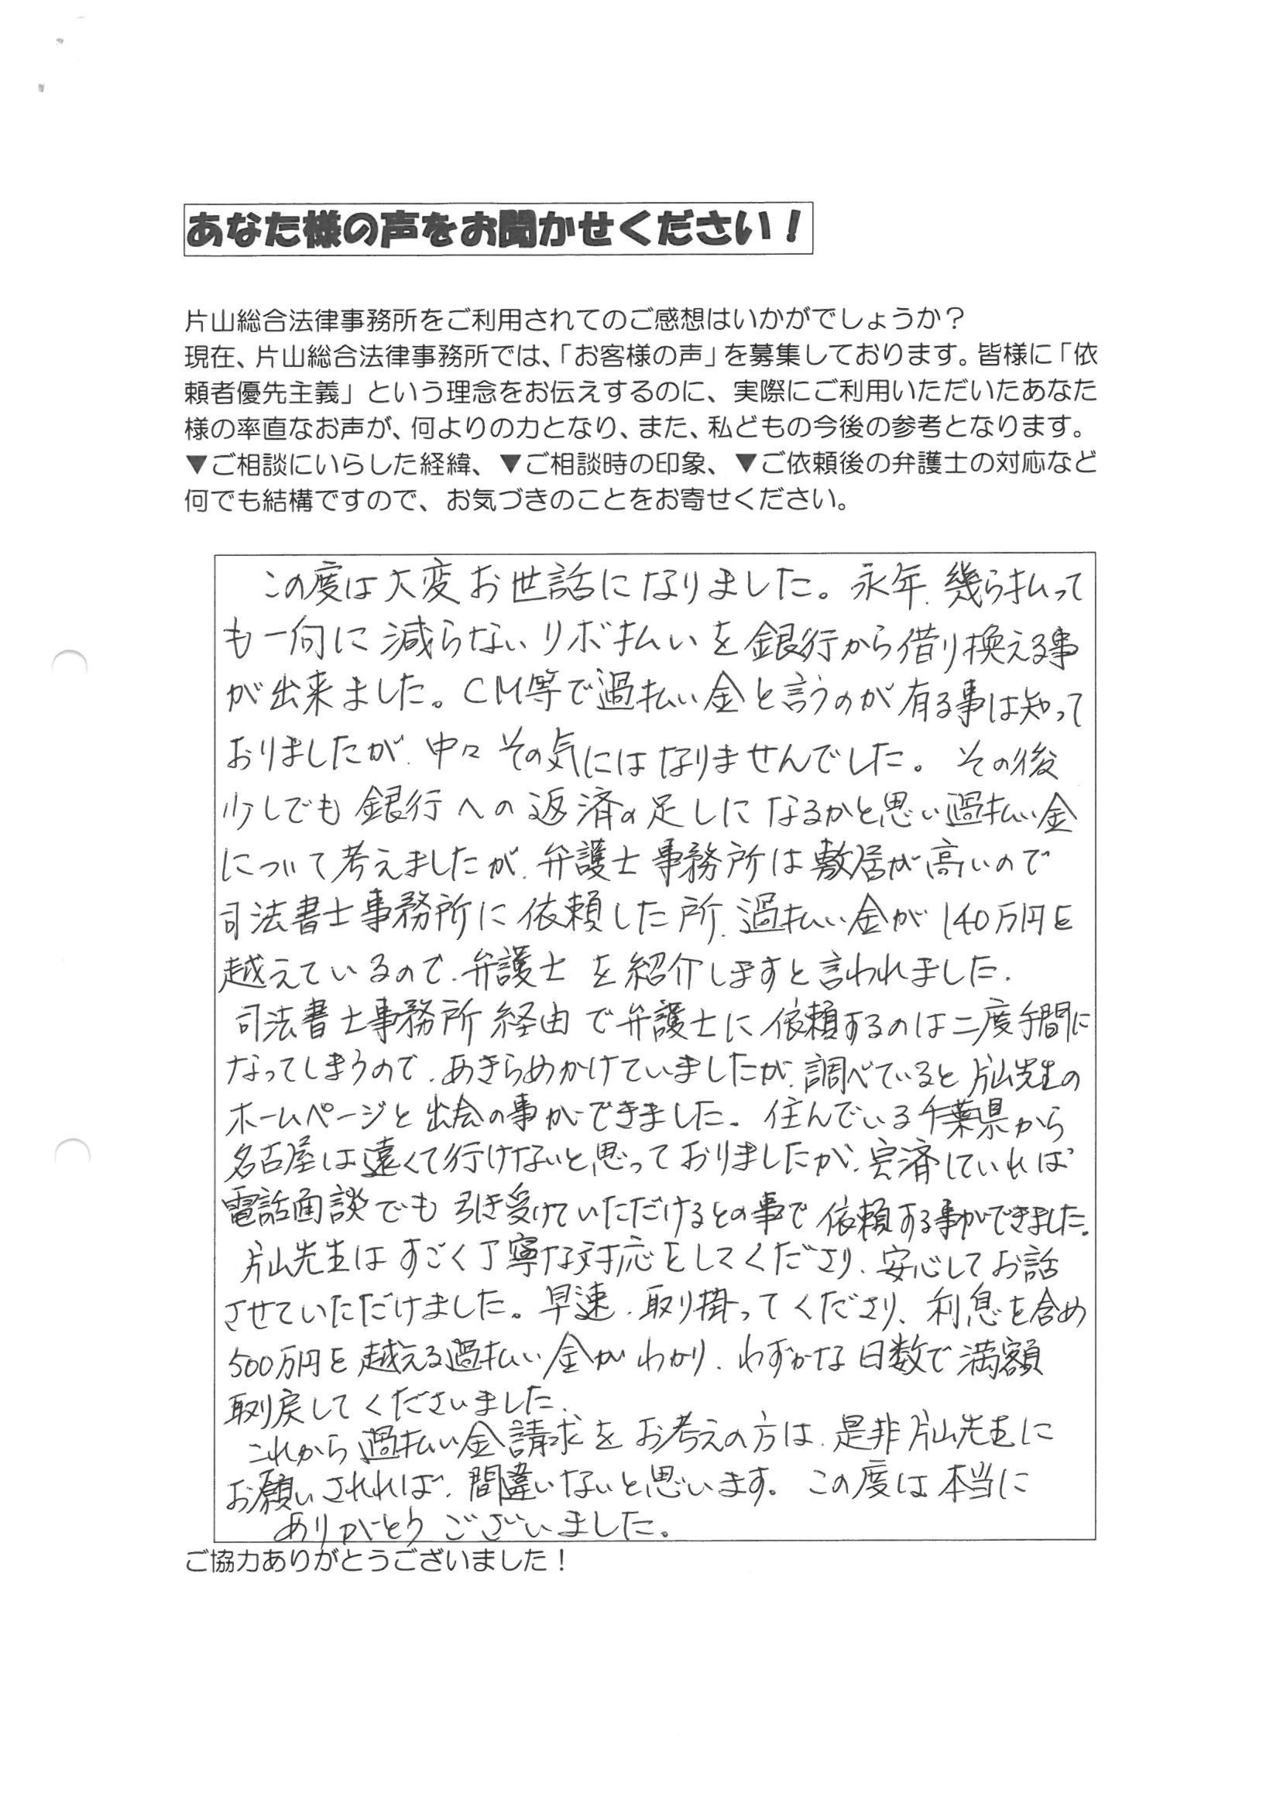 あなた様の声をお聞かせください！
片山総合法律事務所をご利用されてのご感想はいかがでしょうか？
現在、片山総合法律事務所では、「お客様の声」を募集しております。皆様に「依
頼者優先主義」という理念をお伝えするのに、実際にご利用いただいたあなた
様の率直なお声が、何よりの力となり、また、私どもの今後の参考となります。
▼ご相談にいらした経緯、▼ご相談時の印象、▼ご依頼後の弁護士の対応など
何でも結構ですので、お気づきのことをお寄せください。
この度は大変お世話になりました。永年、幾ら払って
も一向に減らないリボ払いを銀行から借り換える事
が出来ました。CM等で過払い金と言うのが有る事は知って
おりましたが、中々その気にはなりませんでした。その後
少しでも銀行への返済の足しになるかと思い過払い金
について考えましたが、弁護士事務所は敷居が高いので
司法書士事務所に依頼した所、過払い金が140万円を
越えているので、弁護士を紹介しますと言われました。
司法書士事務所経由で弁護士に依頼するのは二度手間に
なってしまうので、あきらめかけていましたが、調べていると片山先生の
ホームページと出会の事ができました。住んでいる千葉県から
名古屋は遠くて行けないと思っておりましたが、完済していれば
電話面談でも引き受けていただけるとの事で依頼する事ができました。
片山先生はすごく丁寧な対応をしてくださり、安心してお話
させていただけました。早速、取り掛ってくださり、利息を含め
500万円を越える過払い金がわかり、わずかな日数で満額
取り戻してくださいました。
これから過払い金請求をお考えの方は、是非片山先生に
お願いされれば、間違いないと思います。この度は本当に
ありがとうございました。
ご協力ありがとうございました！